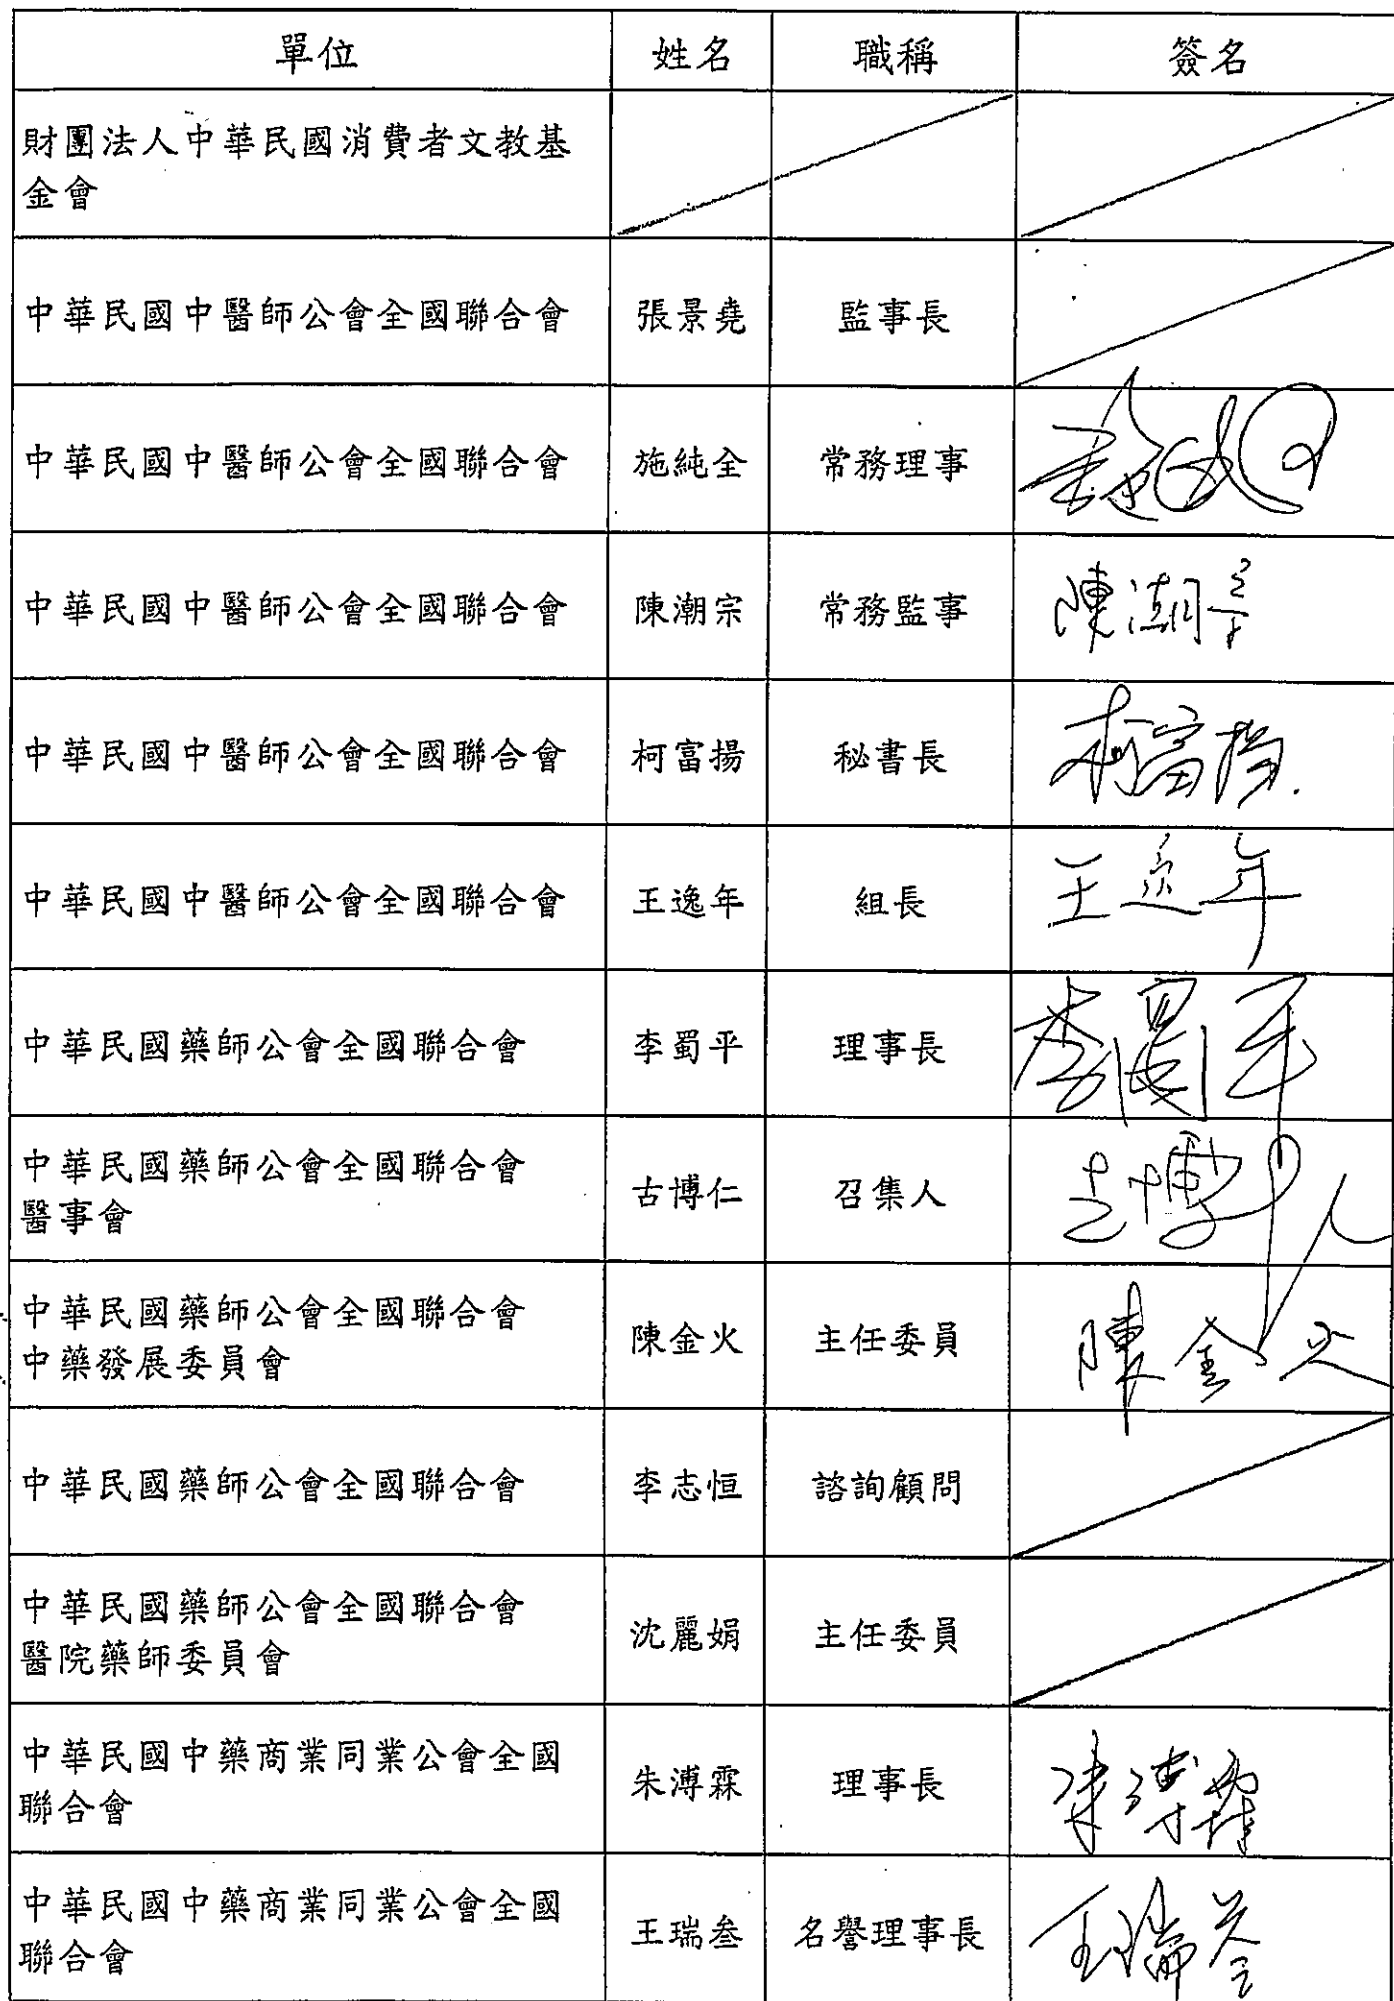 單位 姓名 職稱 簽名
財團法人中華民國消費者文教基
金會
中華民國中醫師公會全國聯合會 張景堯 監事長
中華民國中醫師公會全國聯合會 施純全 常務理事
中華民國中醫師公會全國聯合會 陳潮宗 常務監事 陳潮宗
中華民國中醫師公會全國聯合會 柯富揚 秘書長 柯富揚
中華民國中醫師公會全國聯合會 王逸年 組長 王逸年
中華民國藥師公會全國聯合會 李蜀平 理事長 李蜀平
中華民國藥師公會全國聯合會
醫事會 古博仁 召集人 古博仁
中華民國藥師公會全國聯合會
中藥發展委員會 陳金火 主任委員 陳金火
中華民國藥師公會全國聯合會 李志恒 諮詢顧問
中華民國藥師公會全國聯合會
醫院藥師委員會 沈麗娟 主任委員
中華民國中藥商業同業公會全國
聯合會 朱溥霖 理事長 朱溥霖
中華民國中藥商業同業公會全國
聯合會 王瑞叁 名譽理事長 王瑞叁